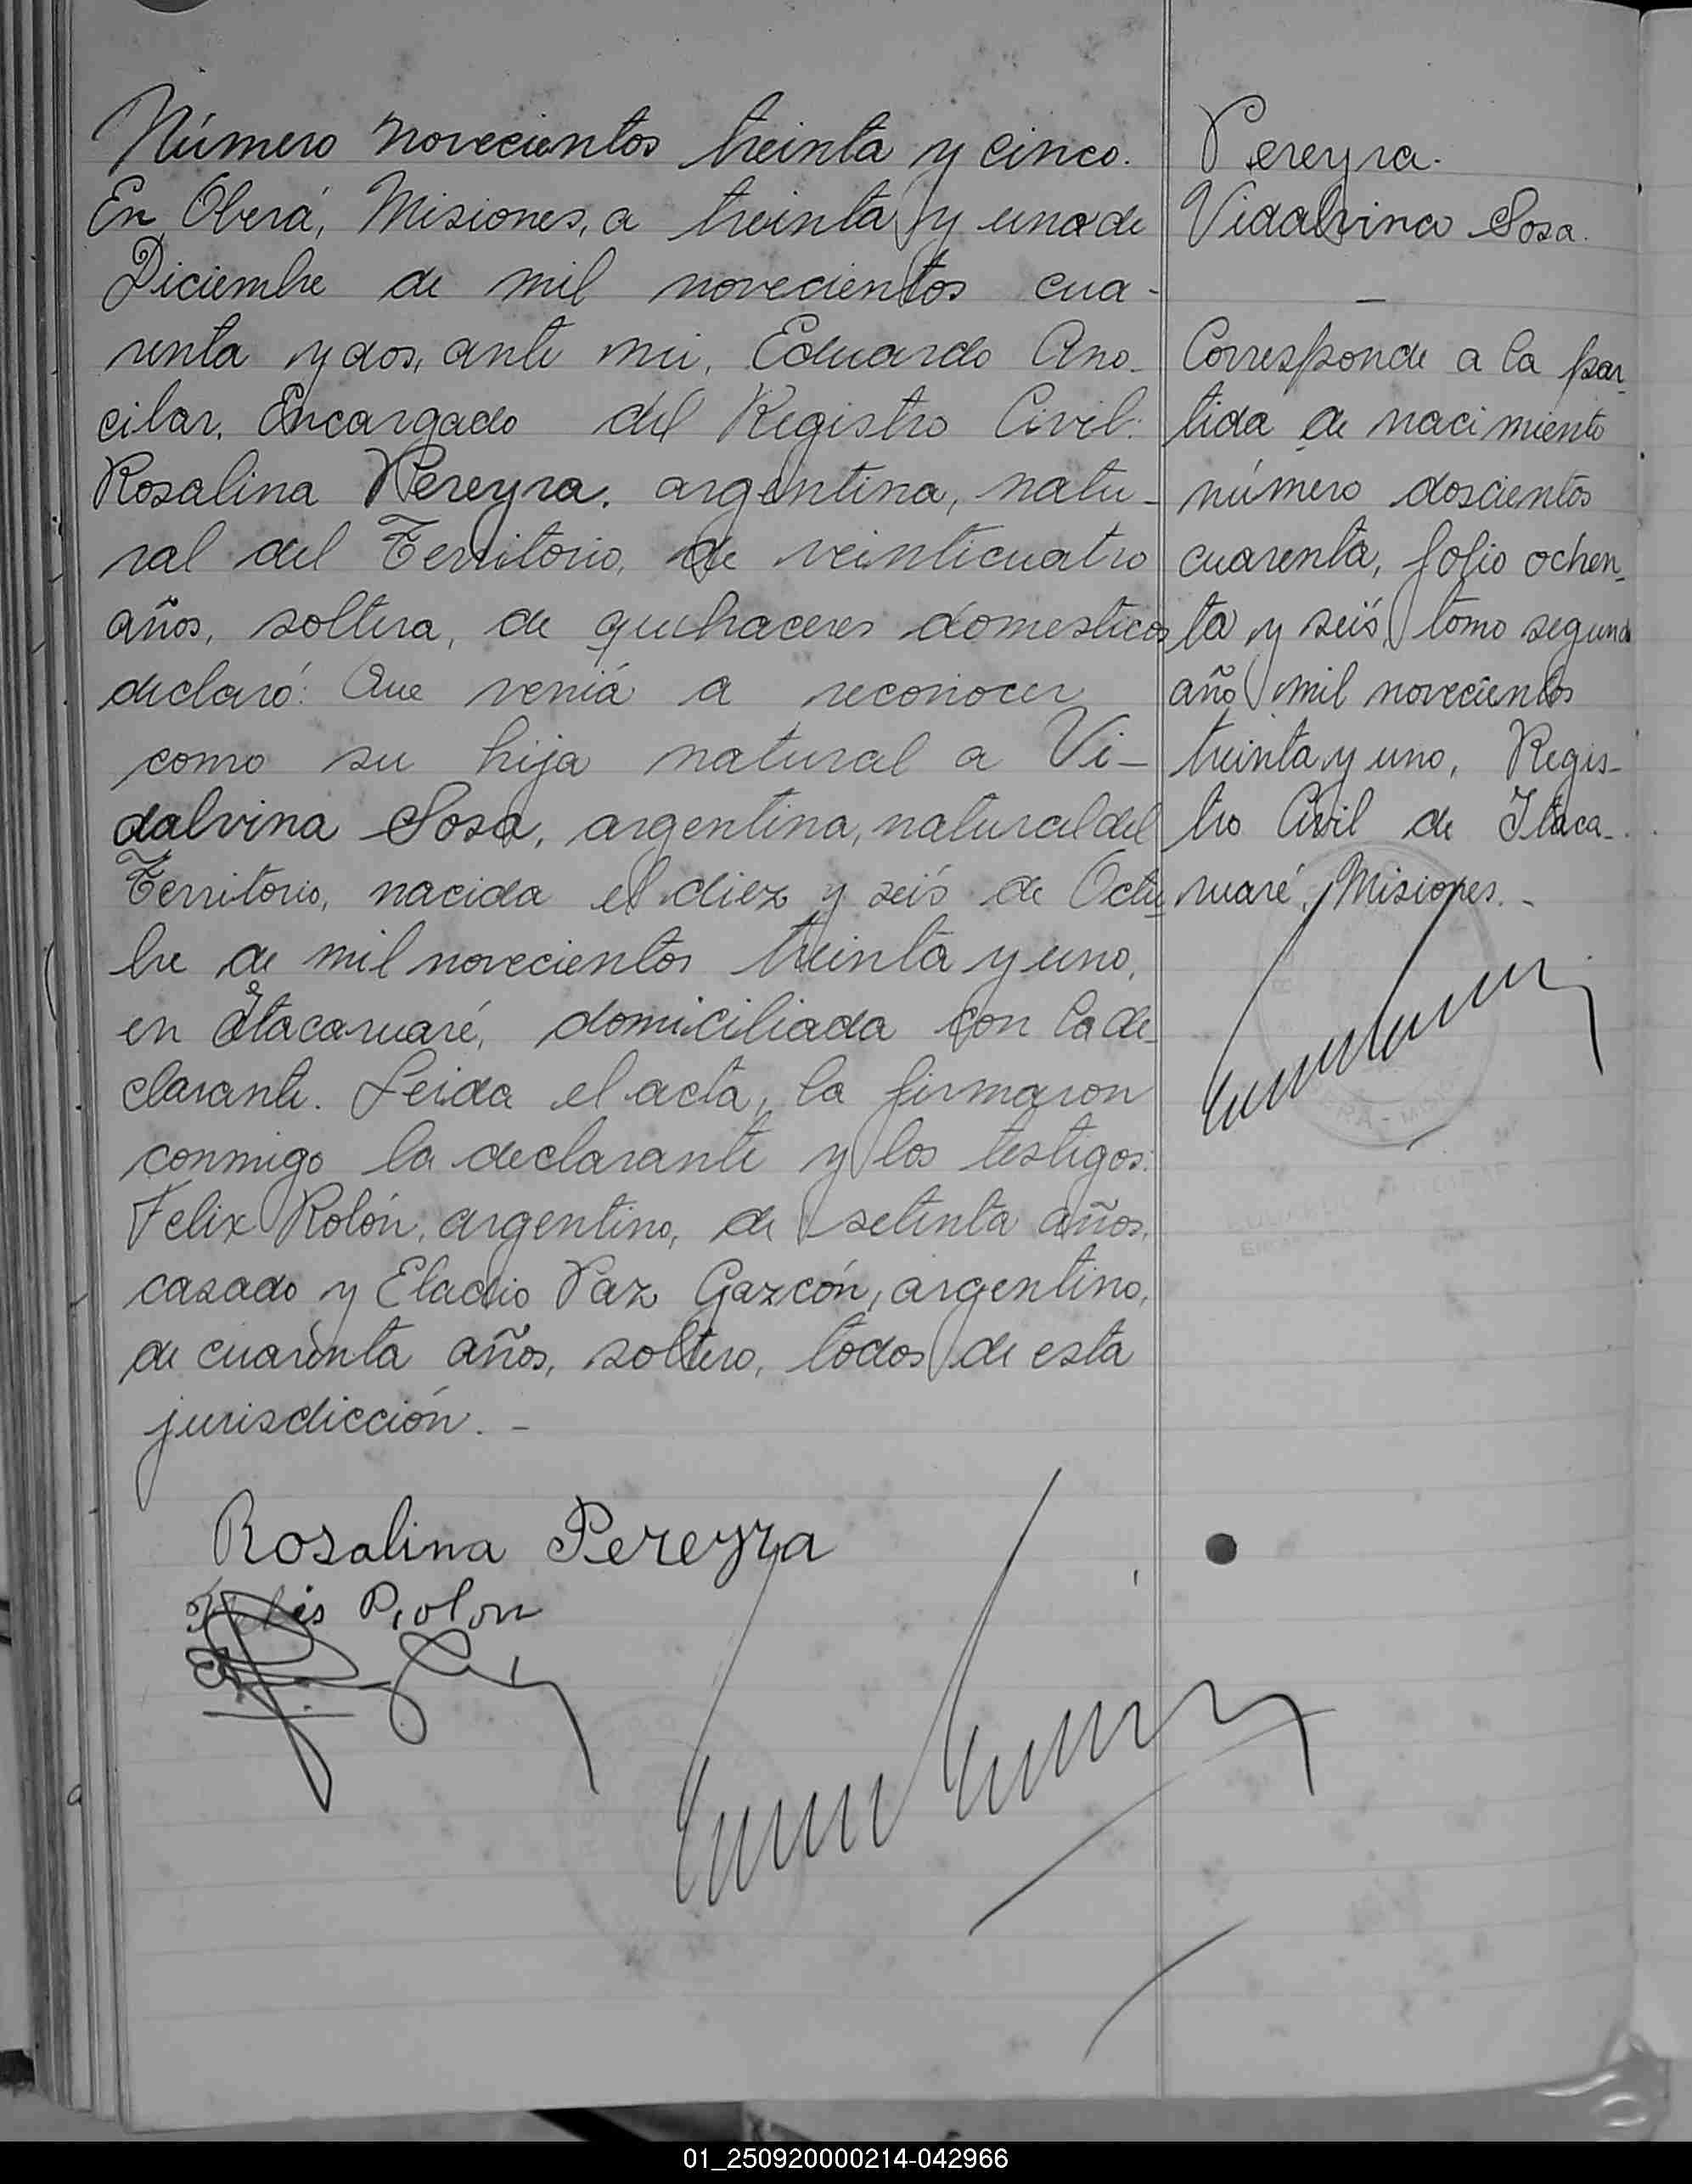 Número novecientos treinta y cinco.
En Oberá, Misiones, a treinta y uno de
Diciembre de mil novecientos cua-
renta y dos, ante mi, Eduardo Ano-
cilar, Encargado del Registro Civil:
Rosalina Pereyra, argentina, natu-
ral del Territorio, de veinticuatro
años, soltera, de quehaceres domesticos
declaró: Que venía a reconocer
como su hija natural a Vi-
dalvina Sosa, argentina, natural del
Territorio, nacida el diez y seis de Octu-
bre de mil novecientos treinta y uno,
en Itacaruaré, domiciliada con la de-
clarante. Leida el acta, la firmaron
conmigo la declarante y los testigos:
Felix Rolón, argentino, de setenta años,
casado y Eladio Paz Gazcón, argentino,
de cuarenta años, soltero, todos de esta
jurisdicción. -
Rosalina Pereyra
Rolon
Pereyra.
Vidalvina Sosa.
-
Corresponde a la par-
tida de nacimiento
número doscientos
cuarenta, folio ochen-
ta y seis, tomo segundo
año mil novecientos
treinta y uno, Regis-
tro Civil de Itaca-
ruaré, Misiones. -
01_250920000214-042966